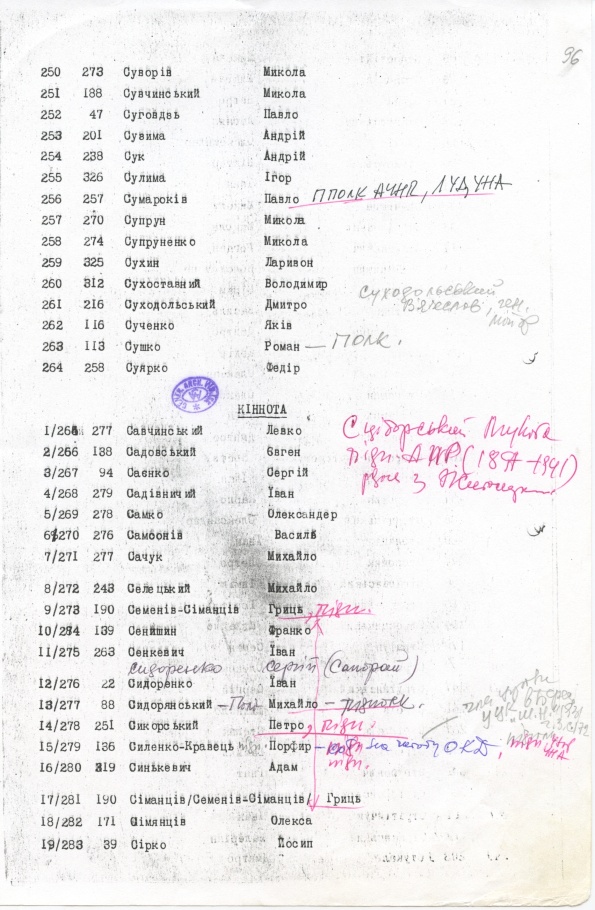 96
250 273 Суворів Микола
251 188 Сувчинський Микола
252 47 Суговдвь Павло
253 201 Сувима Андрій
254 238 Сук Андрій
255 326 Сулима Ігор
256 257 Сумароків Павло ППОЛК АУНР,
257 270 Супрун Микола
258 274 Супруненко Микола
259 325 Сухин Ларивон
260 312 Сухоставний Володимир
Суходольський
261 216 Суходольський Дмитро
Вячеслав, ген.
262 116 Сученко Яків
263 113 Сушко Роман — Полк.
264 258 Суярко Федір
КІННОТА
1/265 277 Савчинський Левко
Сціборський Микола
2/266 188 Садовський Євген
підп. АУНР (1897-1941)
3/267 94 Саєнко Сергій
4/268 279 Садівничий Їван
5/269 278 Самко Олександер
6/270 276 Самбонів Василь
7/271 277 Сачук Михайло
8/272 243 Селецький Михайло
9/273 190 Семенів-Сіманців Гриць, підп.
10/274 139 Сенишин Франко
11/275 263 Сенкевич Їван
Сидоренко Сергій
12/276 22 Сидоренко Їван
13/277 88 Сидорянський — Полт Михайло — підполк.
14/278 251 Сикорський Петро, підп.
15/279 136 Силенко-Кравець Порфир
16/280 319 Синькевич Адам
17/281 190 Сіманців/Семенів-Сіманців/ Гриць
18/282 171 Сімянців Олекса
19/283 39 Сірко Йосип